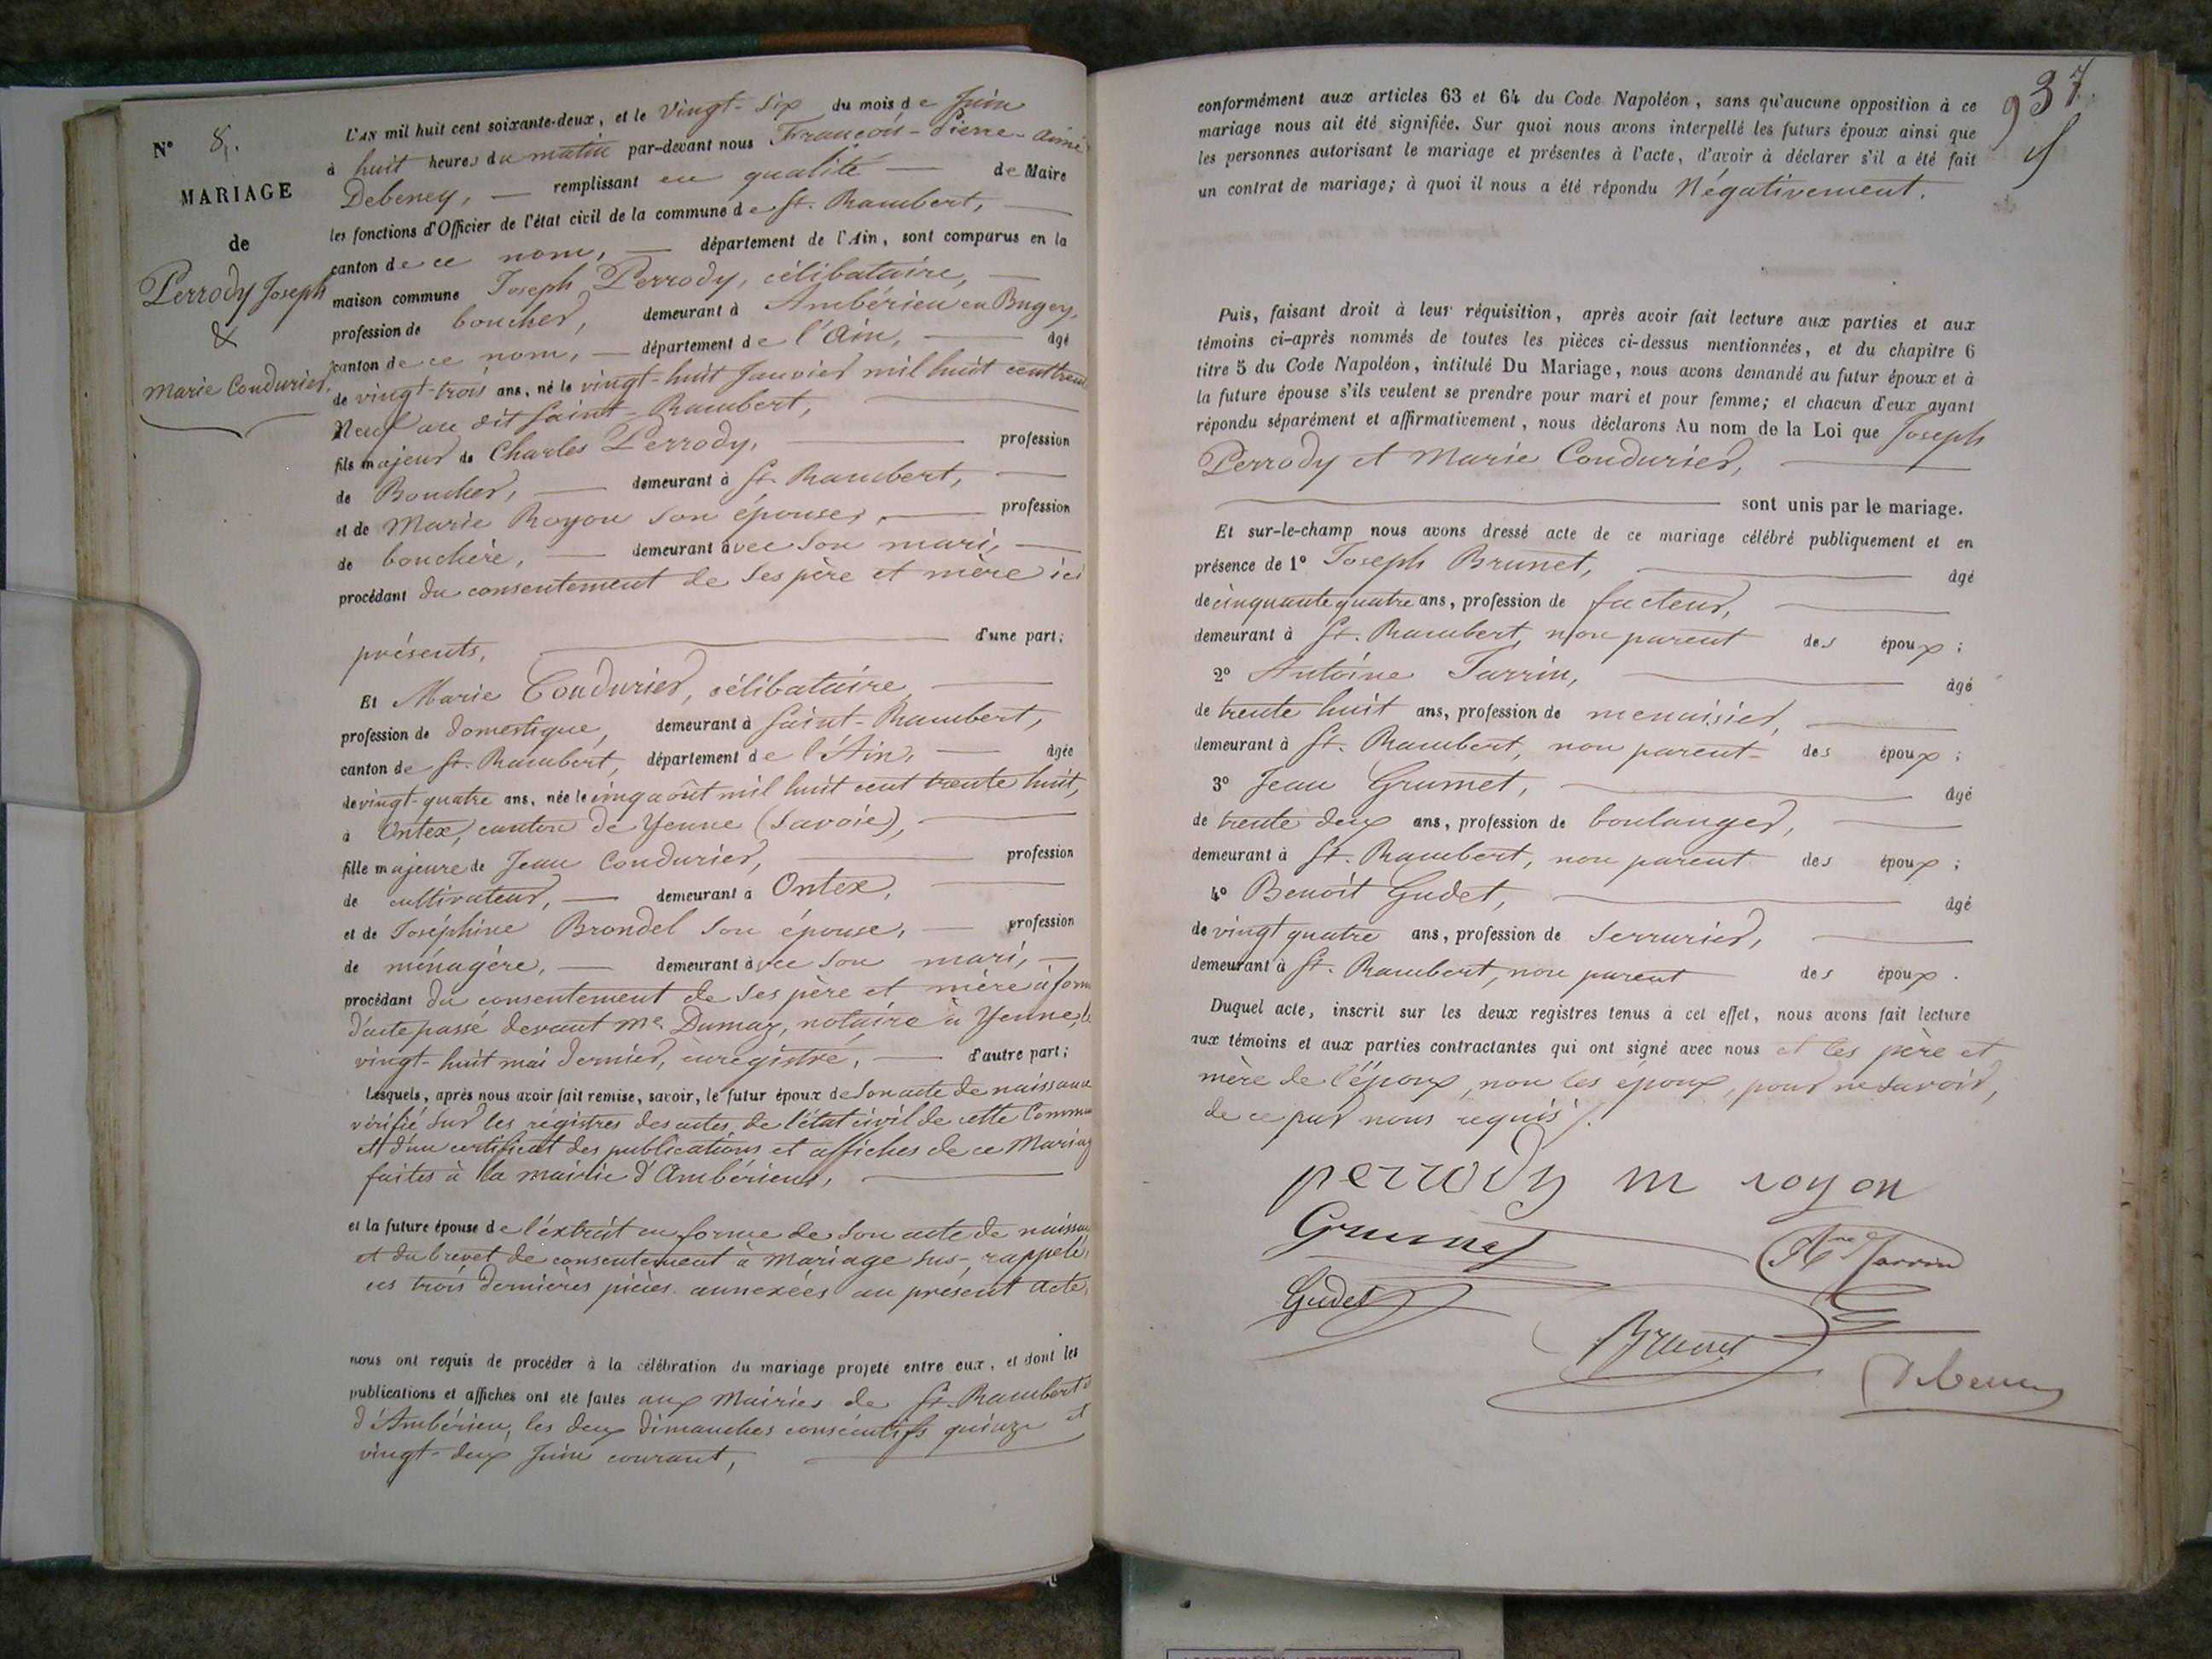 N° 8.
MARIAGE
de
Perrody Joseph
&
Marie Condurier.
L'AN mil huit cent soixante-deux, et le Vingt-Six du mois de Juin
à huit heures du matin par-devant nous François-Pierre-Aimé
Debeney, — remplissant en qualité — de Maire
les fonctions d'Officier de l'état civil de la commune de St. Rambert, —
canton de ce nom, — département de l'Ain, sont comparus en la
maison commune Joseph Perrody, célibataire, —
profession de boucher, demeurant à Ambérieu en Bugey,
canton de ce nom, — département de l'Ain, — âgé
de vingt-trois ans, né le vingt-huit Janvier mil huit cent trente
Neuf au dit Saint-Rambert, —
fils majeur de Charles Perrody, — profession
de Boucher, — demeurant à St. Rambert, —
et de Marie Royon son épouse, — profession
de bouchère, — demeurant avec son mari, —
procédant du consentement de ses père et mère ici
présents, — d'une part;
Et Marie Condurier, célibataire, —
profession de domestique, demeurant à Saint-Rambert,
canton de St. Rambert, département de l'Ain, — âgée
de vingt-quatre ans, née le cinq août mil huit cent trente huit,
à Ontex, canton de Yenne (Savoie), —
fille majeure de Jean Condurier, — profession
de cultivateur, — demeurant à Ontex, —
et de Joséphine Brondel son épouse, — profession
de ménagère, — demeurant avec son mari, —
procédant du consentement de ses père et mère à form
d'acte passé devant Me Dumaz, notaire à Yenne, le
vingt-huit mai dernier, enregistré, — d'autre part;
Lesquels, après nous avoir fait remise, savoir, le futur époux de son acte de naissance
vérifié sur les régistres des actes de l'état civil de cette Commu
et d'un certificat des publications et affiches de ce Mariag
faites à la mairie d'Ambérieu, —
et la future épouse de l'extrait en forme de son acte de naissan
et du brevet de consentement à mariage sus-rappelé,
ces trois dernières pièces annexées au présent acte,
nous ont requis de procéder à la célébration du mariage projeté entre eux, et dont les
publications et affiches ont été faites aux Mairies de St. Rambert &
d'Ambérieu, les deux Dimanches consécutifs quinze et
vingt-deux Juin courant, —
37
conformément aux articles 63 et 64 du Code Napoléon, sans qu'aucune opposition à ce
mariage nous ait été signifiée. Sur quoi nous avons interpellé les futurs époux ainsi que
les personnes autorisant le mariage et présentes à l'acte, d'avoir à déclarer s'il a été fait
un contrat de mariage; à quoi il nous a été répondu Négativement.
Puis, faisant droit à leur réquisition, après avoir fait lecture aux parties et aux
témoins ci-après nommés de toutes les pièces ci-dessus mentionnées, et du chapitre 6
titre 5 du Code Napoléon, intitulé Du Mariage, nous avons demandé au futur époux et à
la future épouse s'ils veulent se prendre pour mari et pour femme; et chacun d'eux ayant
répondu séparément et affirmativement, nous déclarons Au nom de la Loi que Joseph
Perrody et Marie Condurier, —
— sont unis par le mariage.
Et sur-le-champ nous avons dressé acte de ce mariage célébré publiquement et en
présence de 1° Joseph Brunet, — âgé
de cinquante quatre ans, profession de facteur, —
demeurant à St. Rambert, non parent des époux;
2° Antoine Tarrin, — âgé
de trente huit ans, profession de menuisier, —
demeurant à St. Rambert, non parent des époux;
3° Jean Grumet, — âgé
de trente deux ans, profession de boulanger, —
demeurant à St. Rambert, non parent des époux;
4° Benoît Gudet, — âgé
de vingt quatre ans, profession de Serrurier, —
demeurant à St. Rambert, non parent des époux.
Duquel acte, inscrit sur les deux registres tenus à cet effet, nous avons fait lecture
aux témoins et aux parties contractantes qui ont signé avec nous et les père et
mère de l'époux, non les époux, pour ne savoir,
de ce par nous requis /.
perrody m royon
Grumet Ane Tarrin
Gudet
Brunet
Debeney